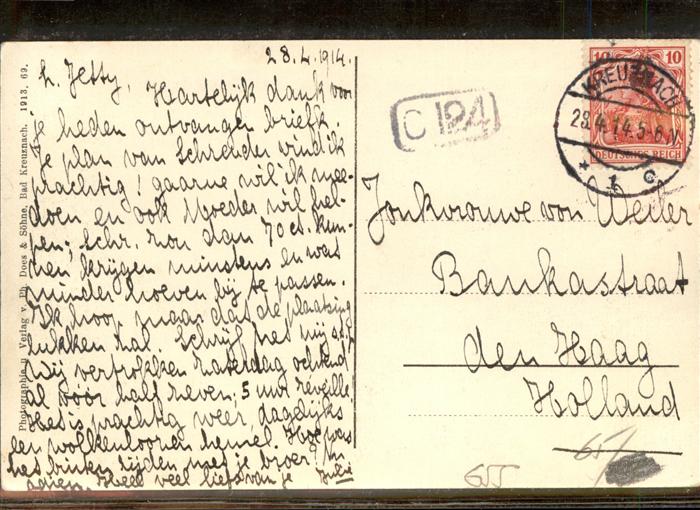 28.4.1914.
L. Jetty, Hartelijk dank voor
je heden ontvangen briefk.
Je plan van Schreuder vind ik
prachtig! gaarne wil ik mee-
doen en ook Moeder wil hel-
pen; Schr. zou dan 70 ct. kun-
nen krijgen minstens en wat
minder hoeven bij te passen.
Ik hoop maar dat de plaatsing
lukken zal. Schrijf het mij
Wij vertrokken Zaterdag ochtend
al vóór half zeven; 5 uur reveille!
Het is prachtig weer, dagelijks
een wolkenloozen hemel. Hoe was
het rijden met je broer?
Heel veel liefs van je Julie
Photographie u Verlag v. Ph. Does & Söhne, Bad Kreuznach. 1913. 69.
C 124
10 10
DEUTSCHES REICH
KREUZNACH
29.4.14.5-6.V.
* 1 c
Jonkvrouwe von Weiler
Bankastraat
den Haag
Holland
65
655